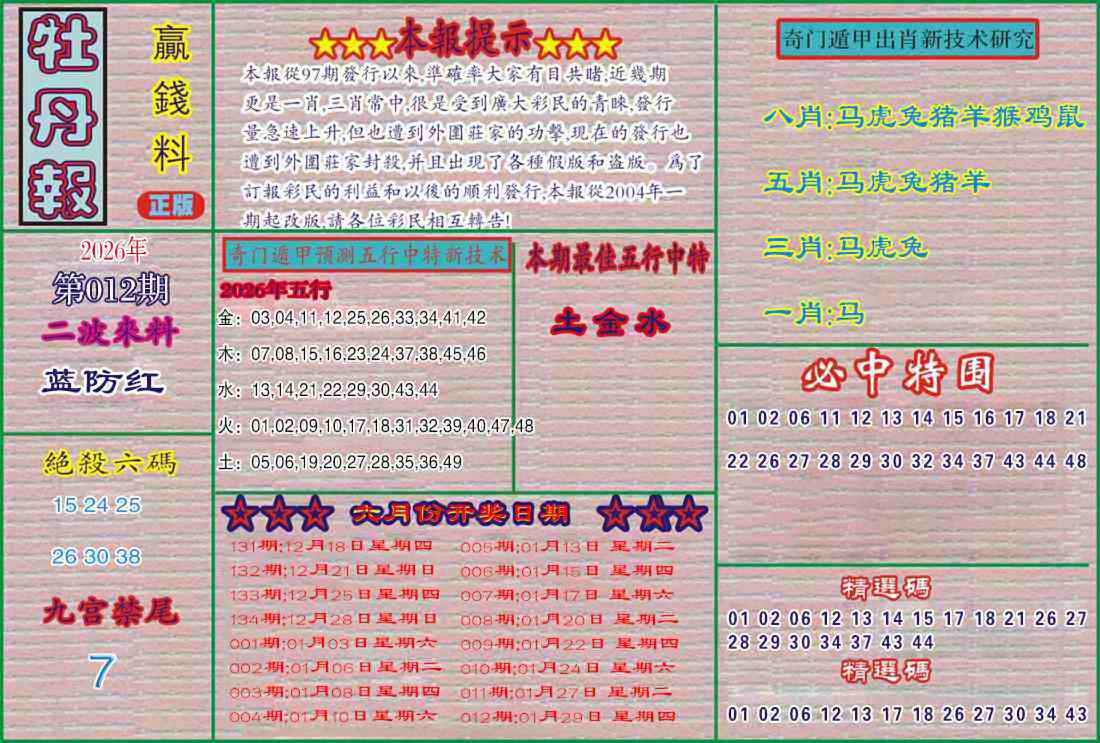 牡丹報
贏錢料
正版
★★★本報提示★★★
本報從97期發行以來,準確率大家有目共睹,近幾期
更是一肖,三肖常中,很是受到廣大彩民的青睞,發行
量急速上升,但也遭到外圍莊家的功擊,現在的發行也
遭到外圍莊家封殺,并且出現了各種假版和盗版。爲了
訂報彩民的利益和以後的順利發行,本報從2004年一
期起改版,請各位彩民相互轉告!
奇门遁甲出肖新技术研究
八肖:马虎兔猪羊猴鸡鼠
五肖:马虎兔猪羊
三肖:马虎兔
一肖:马
2026年
第012期
二波來料
蓝防红
奇门遁甲预测五行中特新技术
2026年五行
金：03,04,11,12,25,26,33,34,41,42
木：07,08,15,16,23,24,37,38,45,46
水：13,14,21,22,29,30,43,44
火：01,02,09,10,17,18,31,32,39,40,47,48
土：05,06,19,20,27,28,35,36,49
本期最佳五行中特
土金水
必中特围
01 02 06 11 12 13 14 15 16 17 18 21
22 26 27 28 29 30 32 34 37 43 44 48
絕殺六碼
15 24 25
26 30 38
九宫禁尾
7
★★★ 六月份开奖日期 ★★★
131期:12月18日星期四 005期:01月13日 星期二
132期:12月21日星期日 006期:01月15日 星期四
133期:12月25日星期四 007期:01月17日 星期六
134期:12月28日星期日 008期:01月20日 星期二
001期:01月03日星期六 009期:01月22日 星期四
002期:01月06日星期二 010期:01月24日 星期六
003期:01月08日星期四 011期:01月27日 星期二
004期:01月10日星期六 012期:01月29日 星期四
精選碼
01 02 06 12 13 14 15 17 18 21 26 27
28 29 30 34 37 43 44
精選碼
01 02 06 12 13 17 18 26 27 30 34 43